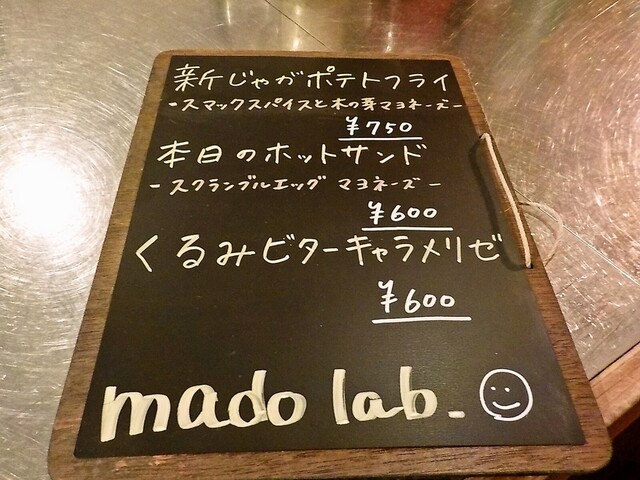 新じゃがポテトフライ
-スマックスパイスと木の芽マヨネーズ-
¥750
本日のホットサンド
-スクランブルエッグ マヨネーズ-
¥600
くるみビターキャラメリゼ
¥600
mado lab.